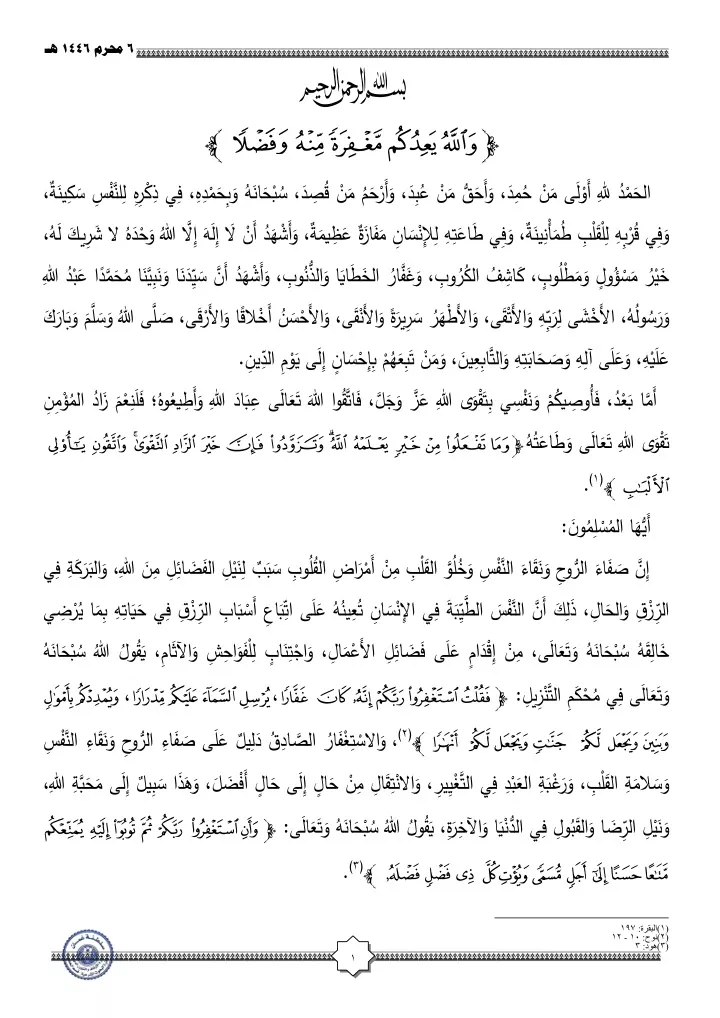 ٦ محرم ١٤٤٦ هـ
بسم الله الرحمن الرحيم
﴿ وَٱللَّهُ يَعِدُكُم مَّغْفِرَةً مِّنْهُ وَفَضْلًا ﴾
الحَمْدُ للهِ أَوْلَى مَنْ حُمِدَ، وَأَحَقُّ مَنْ عُبِدَ، وَأَرْحَمُ مَنْ قُصِدَ، سُبْحَانَهُ وَبِحَمْدِهِ، فِي ذِكْرِهِ لِلنَّفْسِ سَكِينَةٌ،
وَفِي قُرْبِهِ لِلْقَلْبِ طُمَأْنِينَةٌ، وَفِي طَاعَتِهِ لِلإِنْسَانِ مَفَازَةٌ عَظِيمَةٌ، وَأَشْهَدُ أَنْ لَا إِلَهَ إِلَّا اللهُ وَحْدَهُ لا شَرِيكَ لَهُ،
خَيْرُ مَسْؤُولٍ وَمَطْلُوبٍ، كَاشِفُ الكُرُوبِ، وَغَفَّارُ الخَطَايَا وَالذُّنُوبِ، وَأَشْهَدُ أَنَّ سَيِّدَنَا وَنَبِيَّنَا مُحَمَّدًا عَبْدُ اللهِ
وَرَسُولُهُ، الأَخْشَى لِرَبِّهِ وَالأَتْقَى، وَالأَطْهَرُ سَرِيرَةً وَالأَنْقَى، وَالأَحْسَنُ أَخْلاقًا وَالأَرْقَى، صَلَّى اللهُ وَسَلَّمَ وَبَارَكَ
عَلَيْهِ، وَعَلَى آلِهِ وَصَحَابَتِهِ وَالتَّابِعِينَ، وَمَنْ تَبِعَهُمْ بِإِحْسَانٍ إِلَى يَوْمِ الدِّينِ.
أَمَّا بَعْدُ، فَأُوصِيكُمْ وَنَفْسِي بِتَقْوَى اللهِ عَزَّ وَجَلَّ، فَاتَّقُوا اللهَ تَعَالَى عِبَادَ اللهِ وَأَطِيعُوهُ؛ فَلَنِعْمَ زَادُ المُؤْمِنِ
تَقْوَى اللهِ تَعَالَى وَطَاعَتُهُ ﴿ وَمَا تَفْعَلُوا۟ مِنْ خَيْرٍ يَعْلَمْهُ ٱللَّهُ ۗ وَتَزَوَّدُوا۟ فَإِنَّ خَيْرَ ٱلزَّادِ ٱلتَّقْوَىٰ ۚ وَٱتَّقُونِ يَـٰٓأُو۟لِى
ٱلْأَلْبَـٰبِ ﴾(١).
أَيُّهَا المُسْلِمُونَ:
إِنَّ صَفَاءَ الرُّوحِ وَنَقَاءَ النَّفْسِ وَخُلُوَّ القَلْبِ مِنْ أَمْرَاضِ القُلُوبِ سَبَبٌ لِنَيْلِ الفَضَائِلِ مِنَ اللهِ، وَالبَرَكَةِ فِي
الرِّزْقِ وَالحَالِ، ذَلِكَ أَنَّ النَّفْسَ الطَّيِّبَةَ فِي الإِنْسَانِ تُعِينُهُ عَلَى اتِّبَاعِ أَسْبَابِ الرِّزْقِ فِي حَيَاتِهِ بِمَا يُرْضِي
خَالِقَهُ سُبْحَانَهُ وَتَعَالَى، مِنْ إِقْدَامٍ عَلَى فَضَائِلِ الأَعْمَالِ، وَاجْتِنَابٍ لِلْفَوَاحِشِ وَالآثَامِ، يَقُولُ اللهُ سُبْحَانَهُ
وَتَعَالَى فِي مُحْكَمِ التَّنْزِيلِ: ﴿ فَقُلْتُ ٱسْتَغْفِرُوا۟ رَبَّكُمْ إِنَّهُۥ كَانَ غَفَّارًا ، يُرْسِلِ ٱلسَّمَآءَ عَلَيْكُم مِّدْرَارًا ، وَيُمْدِدْكُم بِأَمْوَٰلٍ
وَبَنِينَ وَيَجْعَل لَّكُمْ جَنَّـٰتٍ وَيَجْعَل لَّكُمْ أَنْهَـٰرًا ﴾(٢)، وَالاسْتِغْفَارُ الصَّادِقُ دَلِيلٌ عَلَى صَفَاءِ الرُّوحِ وَنَقَاءِ النَّفْسِ
وَسَلامَةِ القَلْبِ، وَرَغْبَةِ العَبْدِ فِي التَّغْيِيرِ، وَالانْتِقَالِ مِنْ حَالٍ إِلَى حَالٍ أَفْضَلَ، وَهَذَا سَبِيلٌ إِلَى مَحَبَّةِ اللهِ،
وَنَيْلِ الرِّضَا وَالقَبُولِ فِي الدُّنْيَا وَالآخِرَةِ، يَقُولُ اللهُ سُبْحَانَهُ وَتَعَالَى: ﴿ وَأَنِ ٱسْتَغْفِرُوا۟ رَبَّكُمْ ثُمَّ تُوبُوٓا۟ إِلَيْهِ يُمَتِّعْكُم
مَّتَـٰعًا حَسَنًا إِلَىٰٓ أَجَلٍ مُّسَمًّى وَيُؤْتِ كُلَّ ذِى فَضْلٍ فَضْلَهُۥ ﴾(٣).
(١)البقرة: ١٩٧
(٢)نوح: ١٠ - ١٢
(٣)هود: ٣
١